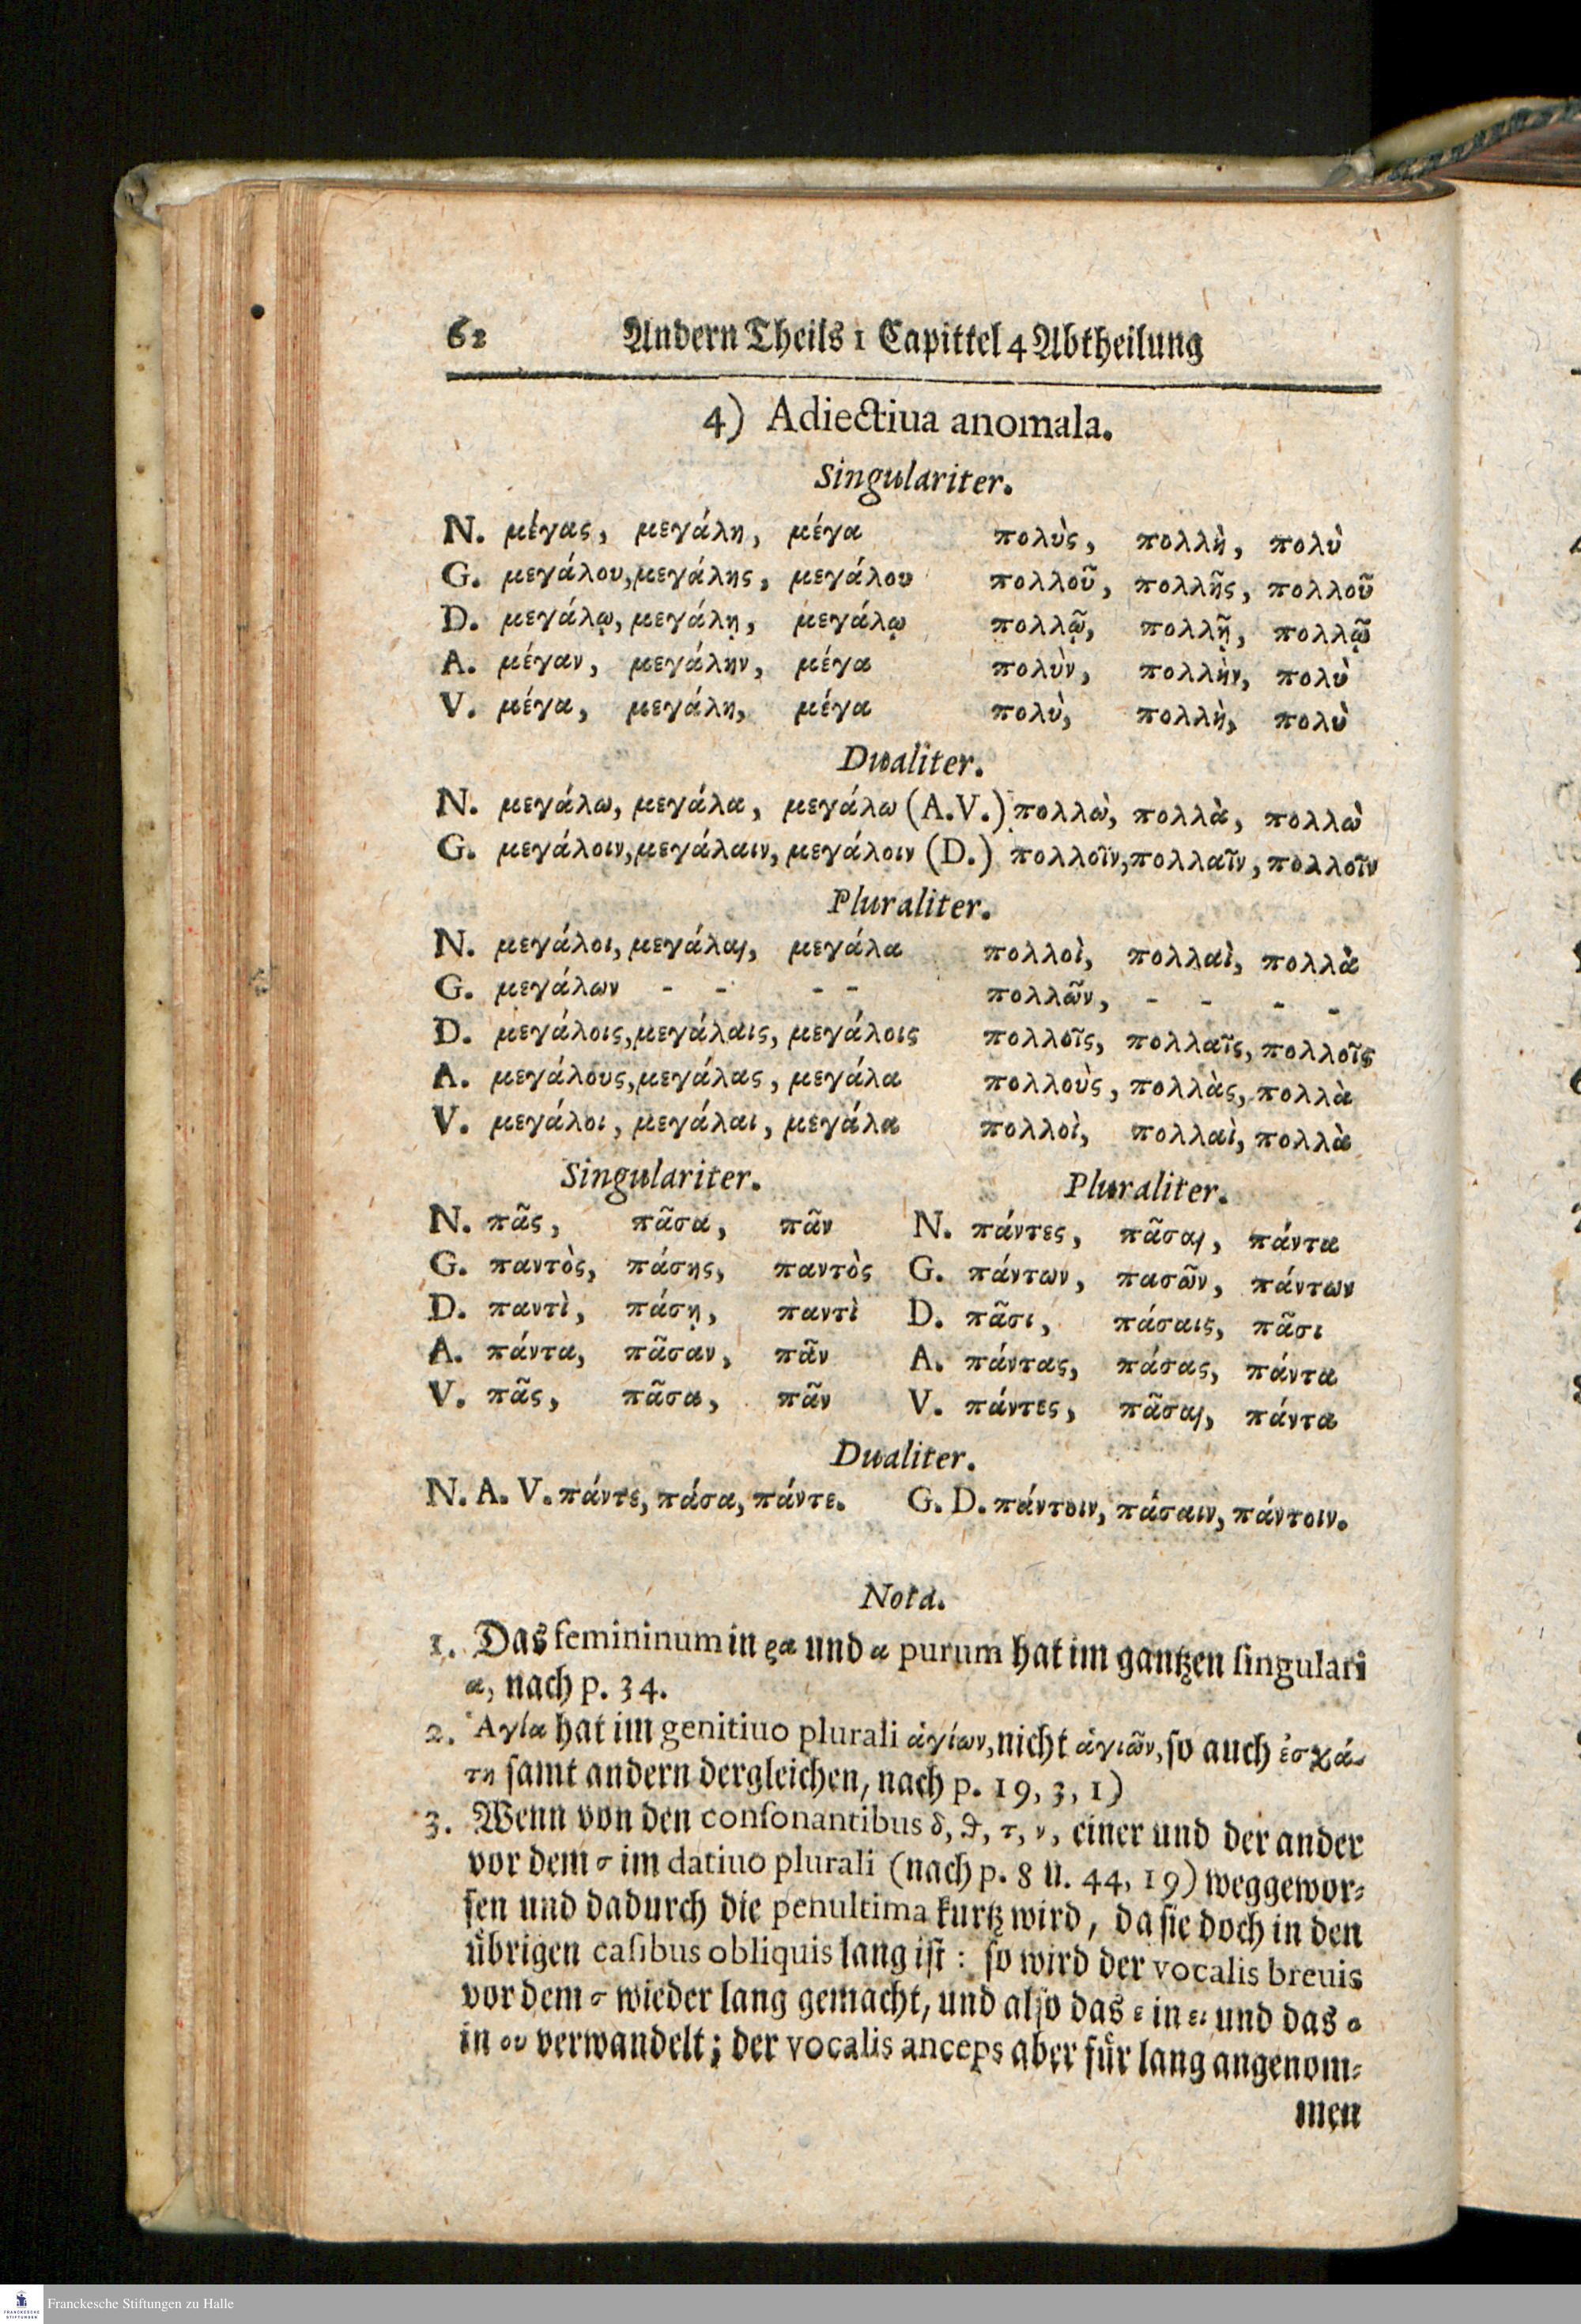 62 Andern Theils 1 Capittel 4 Abtheilung
4) Adiectiua anomala.
Singulariter.
N. μέγας, μεγάλη, μέγα πολὺς, πολλὴ, πολὺ
G. μεγάλου, μεγάλης, μεγάλου πολλοῦ, πολλῆς, πολλοῦ
D. μεγάλῳ, μεγάλῃ, μεγάλῳ πολλῷ, πολλῇ, πολλῷ
A. μέγαν, μεγάλην, μέγα πολὺν, πολλὴν, πολὺ
V. μέγα, μεγάλη, μέγα πολὺ, πολλὴ, πολὺ
Dualiter.
N. μεγάλω, μεγάλα, μεγάλω (A.V.) πολλὼ, πολλὰ, πολλὼ
G. μεγάλοιν, μεγάλαιν, μεγάλοιν (D.) πολλοῖν, πολλαῖν, πολλοῖν
Pluraliter.
N. μεγάλοι, μεγάλαι, μεγάλα πολλοὶ, πολλαὶ, πολλὰ
G. μεγάλων - - - - πολλῶν, - - - -
D. μεγάλοις, μεγάλαις, μεγάλοις πολλοῖς, πολλαῖς, πολλοῖς
A. μεγάλους, μεγάλας, μεγάλα πολλοὺς, πολλὰς, πολλὰ
V. μεγάλοι, μεγάλαι, μεγάλα πολλοὶ, πολλαὶ, πολλὰ
Singulariter. Pluraliter.
N. πᾶς, πᾶσα, πᾶν N. πάντες, πᾶσαι, πάντα
G. παντὸς, πάσης, παντὸς G. πάντων, πασῶν, πάντων
D. παντὶ, πάσῃ, παντὶ D. πᾶσι, πάσαις, πᾶσι
A. πάντα, πᾶσαν, πᾶν A. πάντας, πάσας, πάντα
V. πᾶς, πᾶσα, πᾶν V. πάντες, πᾶσαι, πάντα
Dualiter.
N. A. V. πάντε, πάσα, πάντε. G. D. πάντοιν, πάσαιν, πάντοιν.
Nota.
1. Das femininum in ρα und α purum hat im gantzen ſingulari
α, nach p. 34.
2. Ἁγία hat im genitiuo plurali ἁγίων, nicht ἁγιῶν, ſo auch ἐσχά-
τη ſamt andern dergleichen, nach p. 19, 3, 1)
3. Wenn von den conſonantibus δ, θ, τ, ν, einer und der ander
vor dem σ im datiuo plurali (nach p. 8 u. 44, 19) weggewor-
fen und dadurch die penultima kurtz wird, da ſie doch in den
übrigen caſibus obliquis lang iſt: ſo wird der vocalis breuis
vor dem σ wieder lang gemacht, und alſo das ε in ει und das ο
in ου verwandelt; der vocalis anceps aber für lang angenom-
men
Franckesche Stiftungen zu Halle